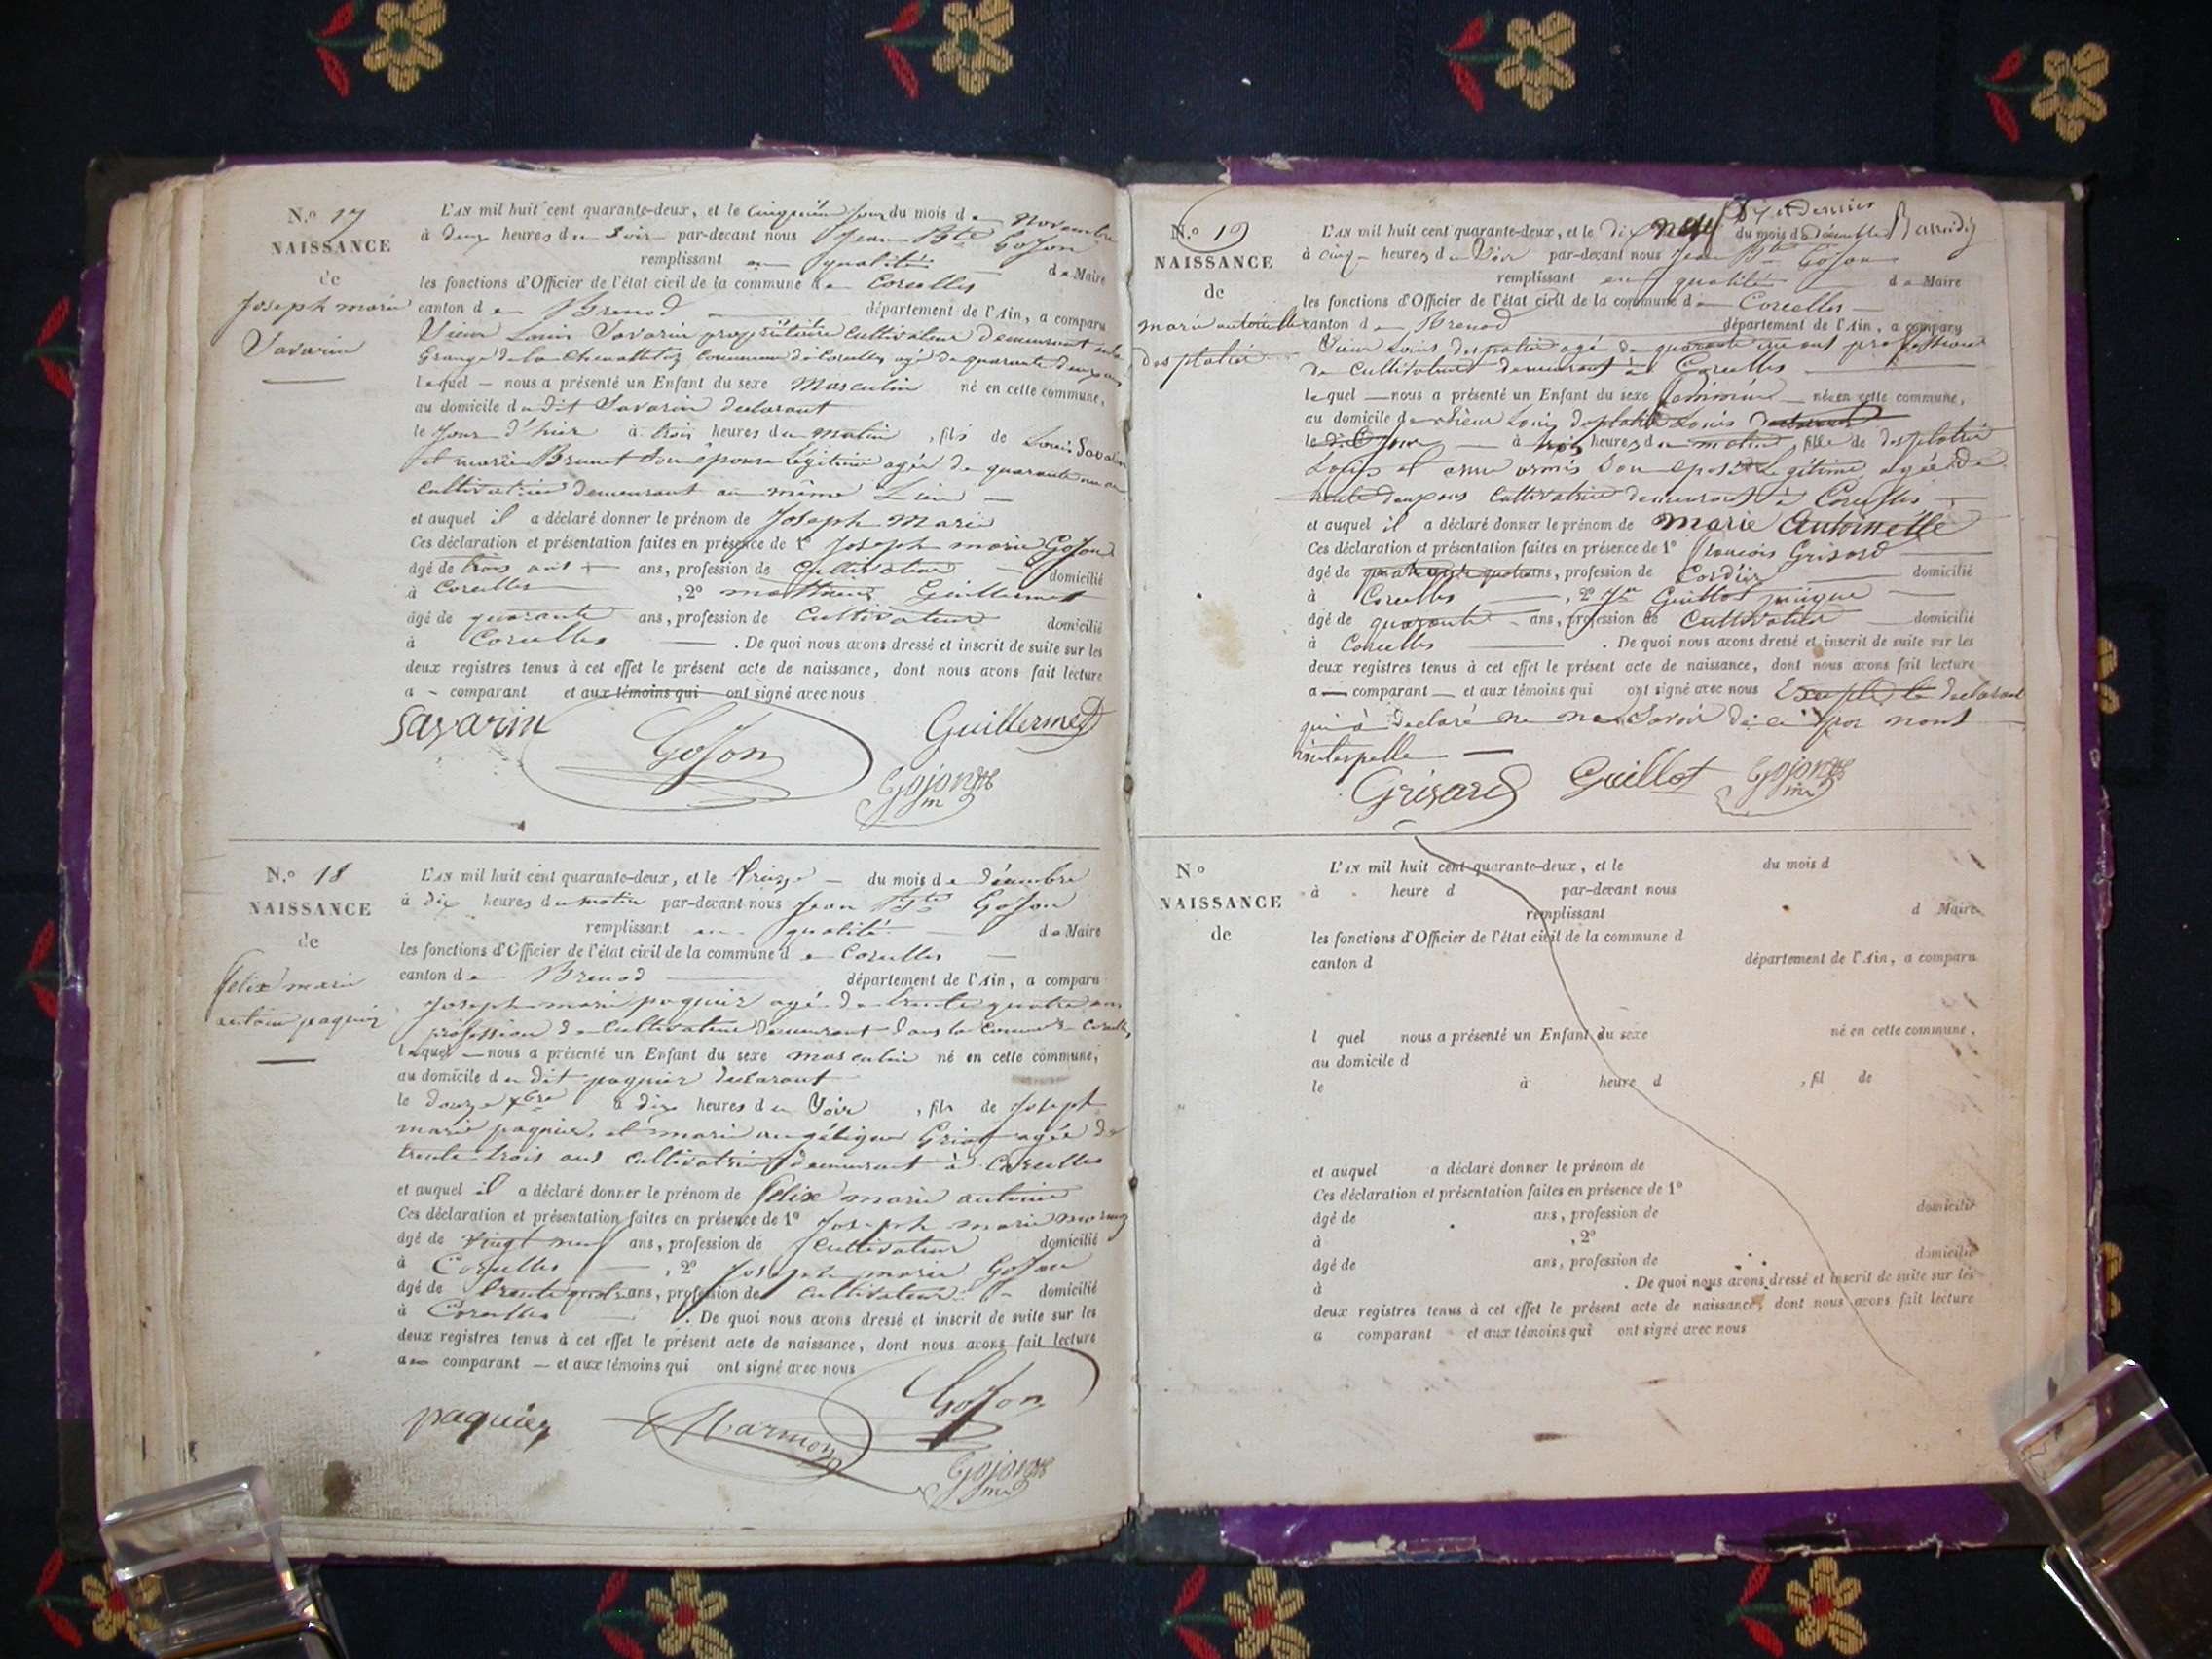 N.º 17
NAISSANCE
de
Joseph marie
Savarin
L'AN mil huit cent quarante-deux, et le cinquième jour du mois de novembre
à deux heures du Soir par-devant nous Jean Bte Gojon
remplissant en qualité de Maire
les fonctions d'Officier de l'état civil de la commune de Corcelles
canton de Brenod département de l'Ain, a comparu
Sieur Louis Savarin propriétaire cultivateur demeurant
Grange de la commune de Corcelles agé de quarante deux ans
lequel — nous a présenté un Enfant du sexe Masculin né en cette commune,
au domicile du dit Savarin declarant
le Jour d'hier à trois heures du matin, fils de Louis Savarin
et marie Brunet Son épouse légitime agée de quarante
cultivatrice demeurant au même Lieu —
et auquel il a déclaré donner le prénom de Joseph Marie
Ces déclaration et présentation faites en présence de 1º Joseph marie Gojon
âgé de trois ans, profession de Cultivateur domicilié
à Corcelles, 2º mathieu Guillermet
âgé de quarante ans, profession de Cultivateur domicilié
à Corcelles — . De quoi nous avons dressé et inscrit de suite sur les
deux registres tenus à cet effet le présent acte de naissance, dont nous avons fait lecture
a - comparant et aux témoins qui ont signé avec nous
Savarin Gojon Guillermet
Gojon
N.º 18
NAISSANCE
de
félix marie
antoine paquiez
L'AN mil huit cent quarante-deux, et le treize — du mois de décembre
à dix heures du matin par-devant nous Jean Bte Gojon
remplissant en qualité de Maire
les fonctions d'Officier de l'état civil de la commune de Corcelles
canton de Brenod département de l'Ain, a comparu
Joseph marie paquiez agé de trente quatre ans
profession de cultivateur demeurant dans la commune de Corcelles
lequel — nous a présenté un Enfant du sexe masculin né en cette commune,
au domicile du dit paquiez declarant
le douze xbre à dix heures du Soir, fils de Joseph
marie paquiez, et marie angélique agée de
trente trois ans cultivatrice demeurant à Corcelles
et auquel il a déclaré donner le prénom de félix marie antoine
Ces déclaration et présentation faites en présence de 1º Joseph marie
âgé de vingt neuf ans, profession de cultivateur domicilié
à Corcelles —, 2º Joseph marie Gojon
âgé de trente quatre ans, profession de cultivateur domicilié
à Corcelles — . De quoi nous avons dressé et inscrit de suite sur les
deux registres tenus à cet effet le présent acte de naissance, dont nous avons fait lecture
au comparant — et aux témoins qui ont signé avec nous
paquiez Gojon
Gojon
N.º 19
NAISSANCE
de
marie antoinette
desplatie
et Dernier
L'AN mil huit cent quarante-deux, et le dix neuf du mois de décembre
à cinq heures du Soir par-devant nous Jean Bte Gojon
remplissant en qualité de Maire
les fonctions d'Officier de l'état civil de la commune de Corcelles —
canton de Brenod département de l'Ain, a comparu
Sieur Louis desplatie agé de quarante ans profession
de cultivateur demeurant à Corcelles
lequel — nous a présenté un Enfant du sexe féminin — née en cette commune,
au domicile de Sieur Louis desplatie Louis
le à trois heures du matin, fille de desplatie
Louis et anne Son epouse Légitime agée de
trente deux ans Cultivatrice demeurant à Corcelles
et auquel il a déclaré donner le prénom de marie Antoinette
Ces déclaration et présentation faites en présence de 1º françois Grisard
âgé de ans, profession de Cordier domicilié
à Corcelles —, 2º Guillot
âgé de quarante ans, profession de Cultivateur domicilié
à Corcelles — . De quoi nous avons dressé et inscrit de suite sur les
deux registres tenus à cet effet le présent acte de naissance, dont nous avons fait lecture
a — comparant — et aux témoins qui ont signé avec nous Excepté le declarant
qui à declaré ne Savoir de ce par nous
interpelle —
Grisard Guillot Gojon
Nº
NAISSANCE
de
L'AN mil huit cent quarante-deux, et le du mois d
à heure d par-devant nous
remplissant d Maire
les fonctions d'Officier de l'état civil de la commune d
canton d département de l'Ain, a comparu
l quel nous a présenté un Enfant du sexe né en cette commune,
au domicile d
le à heure d , fil de
et auquel a déclaré donner le prénom de
Ces déclaration et présentation faites en présence de 1º
âgé de ans, profession de domicilié
à , 2º
âgé de ans, profession de domicilié
à . De quoi nous avons dressé et inscrit de suite sur les
deux registres tenus à cet effet le présent acte de naissance, dont nous avons fait lecture
a comparant et aux témoins qui ont signé avec nous